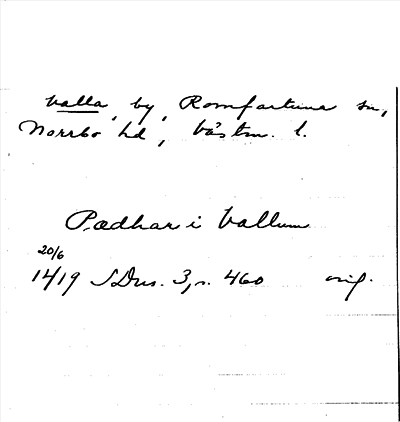 Valla, by, Romfartuna sn,
Norrbo hd, Västm. l.
Pædhar i Vallum
20/6
1419 SDns. 3, s. 460 orig.